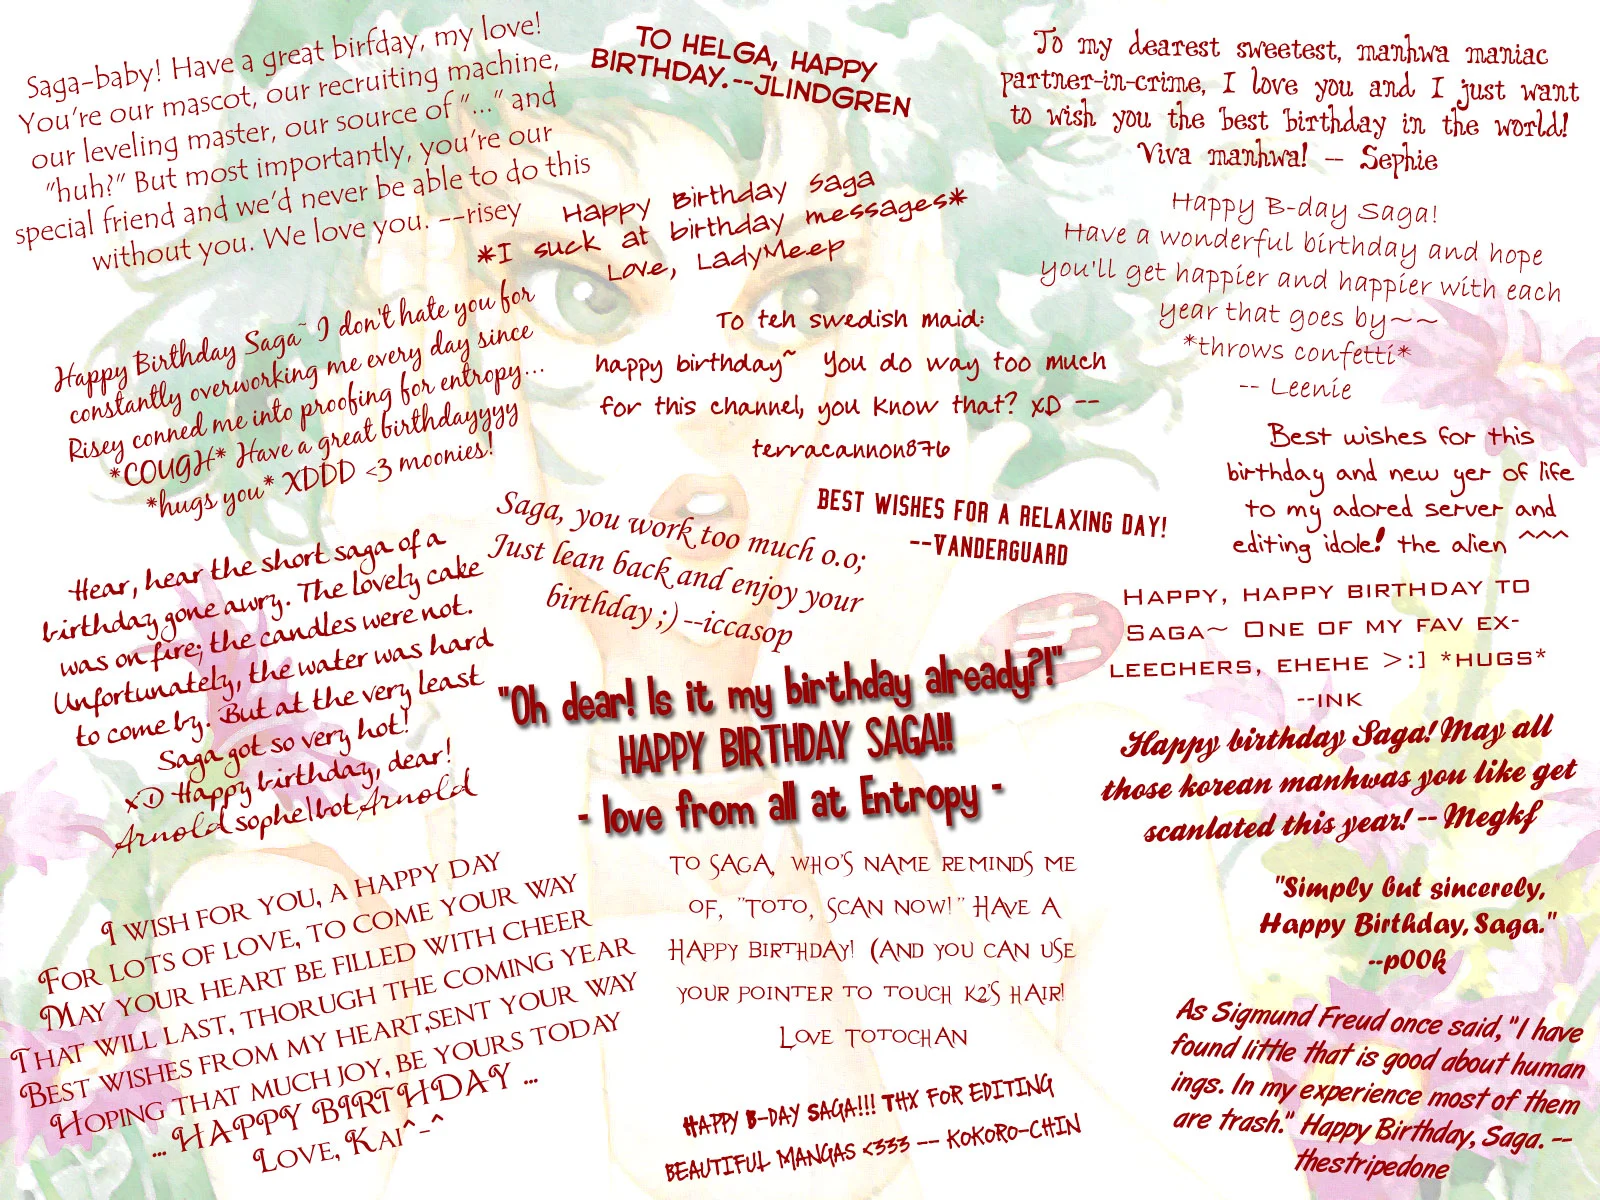 Saga-baby! Have a great birfday, my love!
You're our mascot, our recruiting machine,
our leveling master, our source of "..." and
"huh?" But most importantly, you're our
special friend and we'd never be able to do this
without you. We love you. --risey
TO HELGA, HAPPY
BIRTHDAY.--JLINDGREN
To my dearest sweetest, manhwa maniac
partner-in-crime, I love you and I just want
to wish you the best birthday in the world!
Viva manhwa! -- Sephie
Happy Birthday Saga
*I suck at birthday messages*
Love, LadyMeep
Happy B-day Saga!
Have a wonderful birthday and hope
you'll get happier and happier with each
year that goes by~~
*throws confetti*
-- Leenie
Happy Birthday Saga~ I don't hate you for
constantly overworking me every day since
Risey conned me into proofing for entropy...
*COUGH* Have a great birthdayyyy
*hugs you* XDDD <3 moonies!
To teh swedish maid:
happy birthday~ You do way too much
for this channel, you know that? xD --
terracannon876
Best wishes for this
birthday and new yer of life
to my adored server and
editing idole! the alien ^^^
Saga, you work too much o.o;
Just lean back and enjoy your
birthday ;) --iccasop
BEST WISHES FOR A RELAXING DAY!
--VANDERGUARD
Hear, hear the short saga of a
birthday gone awry. The lovely cake
was on fire; the candles were not.
Unfortunately, the water was hard
to come by. But at the very least
Saga got so very hot!
xD Happy birthday, dear!
Arnold sophelbot Arnold
HAPPY, HAPPY BIRTHDAY TO
SAGA~ ONE OF MY FAV EX-
LEECHERS, EHEHE >:] *HUGS*
--INK
"Oh dear! Is it my birthday already?!"
HAPPY BIRTHDAY SAGA!!
- love from all at Entropy -
Happy birthday Saga! May all
those korean manhwas you like get
scanlated this year! -- Megkf
I WISH FOR YOU, A HAPPY DAY
FOR LOTS OF LOVE, TO COME YOUR WAY
MAY YOUR HEART BE FILLED WITH CHEER
THAT WILL LAST, THORUGH THE COMING YEAR
BEST WISHES FROM MY HEART,SENT YOUR WAY
HOPING THAT MUCH JOY, BE YOURS TODAY
... HAPPY BIRTHDAY ...
LOVE, KAI^-^
TO SAGA, WHO'S NAME REMINDS ME
OF, "TOTO, SCAN NOW!" HAVE A
HAPPY BIRTHDAY! (AND YOU CAN USE
YOUR POINTER TO TOUCH K2'S HAIR!
LOVE TOTOCHAN
"Simply but sincerely,
Happy Birthday, Saga."
--p00k
HAPPY B-DAY SAGA!!! THX FOR EDITING
BEAUTIFUL MANGAS <333 -- KOKORO-CHIN
As Sigmund Freud once said, "I have
found little that is good about human
ings. In my experience most of them
are trash." Happy Birthday, Saga. --
thestripedone